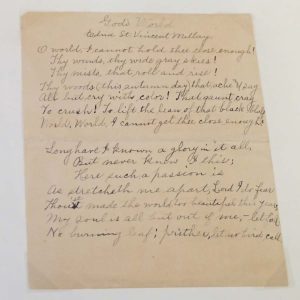 God's World
Edna St. Vincent Millay
O world, I cannot hold thee close enough!
Thy winds, thy wide gray skies!
Thy mists, that roll and rise!
Thy woods, this autumn day, that ache & sag
All but cry with color! That gaunt crag
To crush! To lift the lean of that black bluff
World, World, I cannot get thee close enough!
Long have I known a glory in it all,
But never knew I this;
Here such a passion is
As stretcheth me apart, Lord I do fear
Thou'st made the world too beautiful this year,
My soul is all but out of me, - let fall
No burning leaf; prithee, let no bird call.